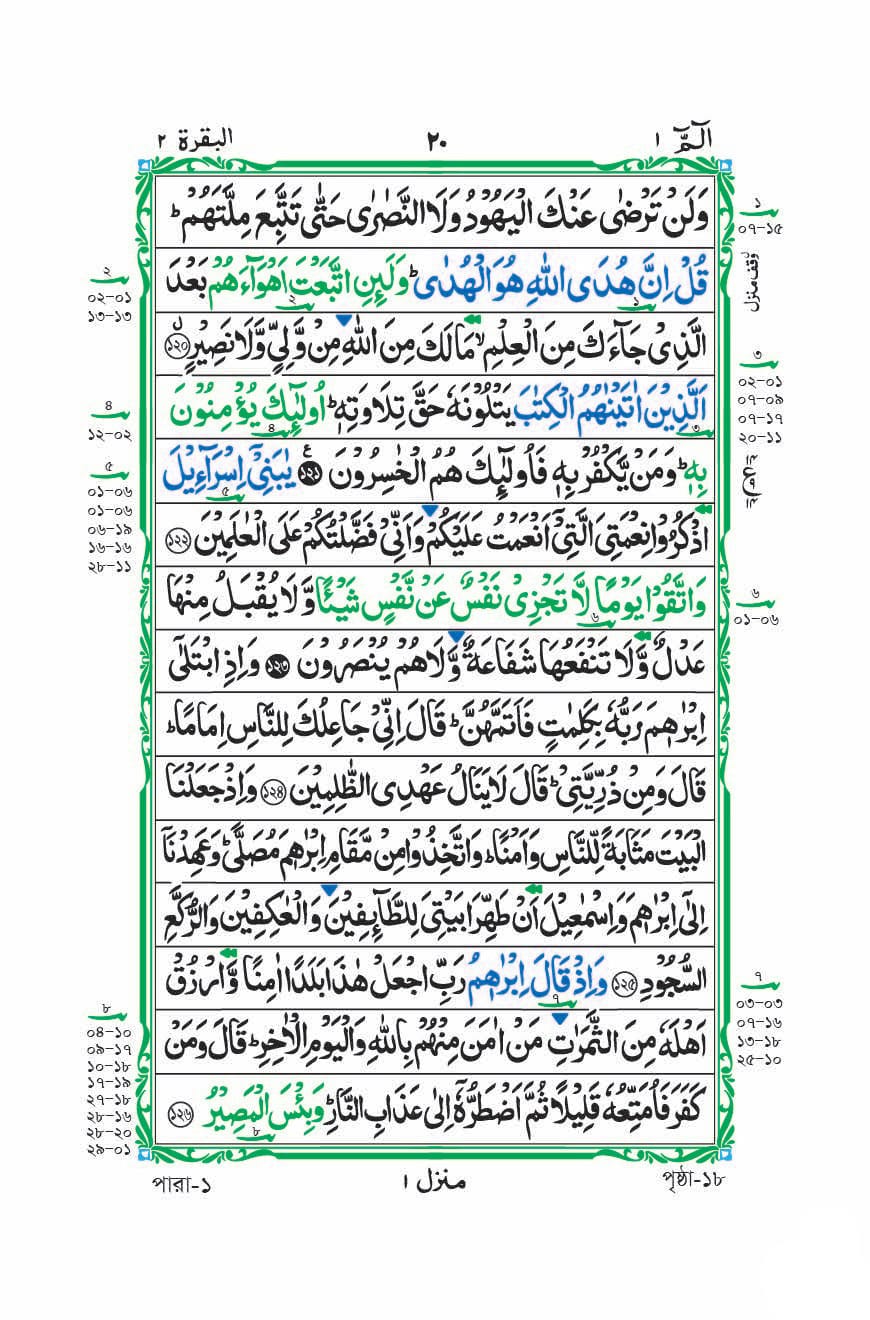 الٓمّٓ ١
٢٠
البقرة ٢
وَلَنْ تَرْضٰى عَنْكَ الْيَهُوْدُ وَلَا النَّصٰرٰى حَتّٰى تَتَّبِعَ مِلَّتَهُمْ ؕ
قُلْ اِنَّ هُدَى اللّٰهِ هُوَ الْهُدٰى ؕ وَلَئِنِ اتَّبَعْتَ اَهْوَآءَهُمْ بَعْدَ
الَّذِىْ جَآءَكَ مِنَ الْعِلْمِ ۙ مَا لَكَ مِنَ اللّٰهِ مِنْ وَّلِىٍّ وَّلَا نَصِيْرٍ ؔ ১২০
اَلَّذِيْنَ اٰتَيْنٰهُمُ الْكِتٰبَ يَتْلُوْنَهٗ حَقَّ تِلَاوَتِهٖ ؕ اُولٰٓئِكَ يُؤْمِنُوْنَ
بِهٖ ؕ وَمَنْ يَّكْفُرْ بِهٖ فَاُولٰٓئِكَ هُمُ الْخٰسِرُوْنَ ١٢١ يٰبَنِىْٓ اِسْرَآءِيْلَ
اذْكُرُوْا نِعْمَتِىَ الَّتِىْٓ اَنْعَمْتُ عَلَيْكُمْ وَاَنِّىْ فَضَّلْتُكُمْ عَلَى الْعٰلَمِيْنَ ১২২
وَاتَّقُوْا يَوْمًا لَّا تَجْزِىْ نَفْسٌ عَنْ نَّفْسٍ شَيْـًٔا وَّلَا يُقْبَلُ مِنْهَا
عَدْلٌ وَّلَا تَنْفَعُهَا شَفَاعَةٌ وَّلَا هُمْ يُنْصَرُوْنَ ১২৩ وَاِذِ ابْتَلٰٓى
اِبْرٰهٖمَ رَبُّهٗ بِكَلِمٰتٍ فَاَتَمَّهُنَّ ؕ قَالَ اِنِّىْ جَاعِلُكَ لِلنَّاسِ اِمَامًا ؕ
قَالَ وَمِنْ ذُرِّيَّتِىْ ؕ قَالَ لَا يَنَالُ عَهْدِى الظّٰلِمِيْنَ ১২৪ وَاِذْ جَعَلْنَا
الْبَيْتَ مَثَابَةً لِّلنَّاسِ وَاَمْنًا ؕ وَاتَّخِذُوْا مِنْ مَّقَامِ اِبْرٰهٖمَ مُصَلًّى ؕ وَعَهِدْنَآ
اِلٰٓى اِبْرٰهٖمَ وَاِسْمٰعِيْلَ اَنْ طَهِّرَا بَيْتِىَ لِلطَّآئِفِيْنَ وَالْعٰكِفِيْنَ وَالرُّكَّعِ
السُّجُوْدِ ১২৫ وَاِذْ قَالَ اِبْرٰهٖمُ رَبِّ اجْعَلْ هٰذَا بَلَدًا اٰمِنًا وَّارْزُقْ
اَهْلَهٗ مِنَ الثَّمَرٰتِ مَنْ اٰمَنَ مِنْهُمْ بِاللّٰهِ وَالْيَوْمِ الْاٰخِرِ ؕ قَالَ وَمَنْ
كَفَرَ فَاُمَتِّعُهٗ قَلِيْلًا ثُمَّ اَضْطَرُّهٗٓ اِلٰى عَذَابِ النَّارِ ؕ وَبِئْسَ الْمَصِيْرُ ১২৬
১
০৭-১৫
وقف منزل
৩
০২-০১
০৭-০৯
০৭-১৭
২০-১১
৬
০১-০৬
৭
০৩-০৩
০৭-১৬
১৩-১৮
২৫-১০
২
০২-০১
১৩-১৩
৪
১২-০২
৫
০১-০৬
০১-০৬
০৬-১৯
১৬-১৬
২৮-১১
৮
০৪-১০
০৯-১৭
১০-১৮
১৭-১৯
২৭-১৮
২৮-১৬
২৮-২০
২৯-০১
পৃষ্ঠা-১৮
منزل ١
পারা-১